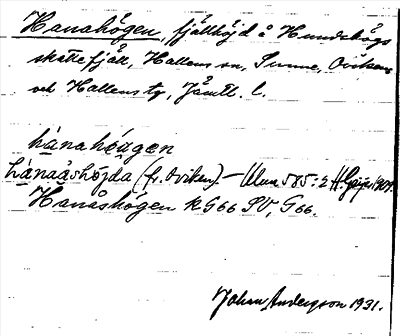 Hanahögen, fjällhöjd å Hundshögs
skaftefjäll, Hallens sn, Sunne, Ovikens
och Hallens tg, Jämtl. l.
hánahö́ugen
hánaåshöjda (fr. Oviken). – Ulma 585:2 H. Geijer 1909.
Hanåshögen KG 66 SV, G66.
Johan Anderson 1931.